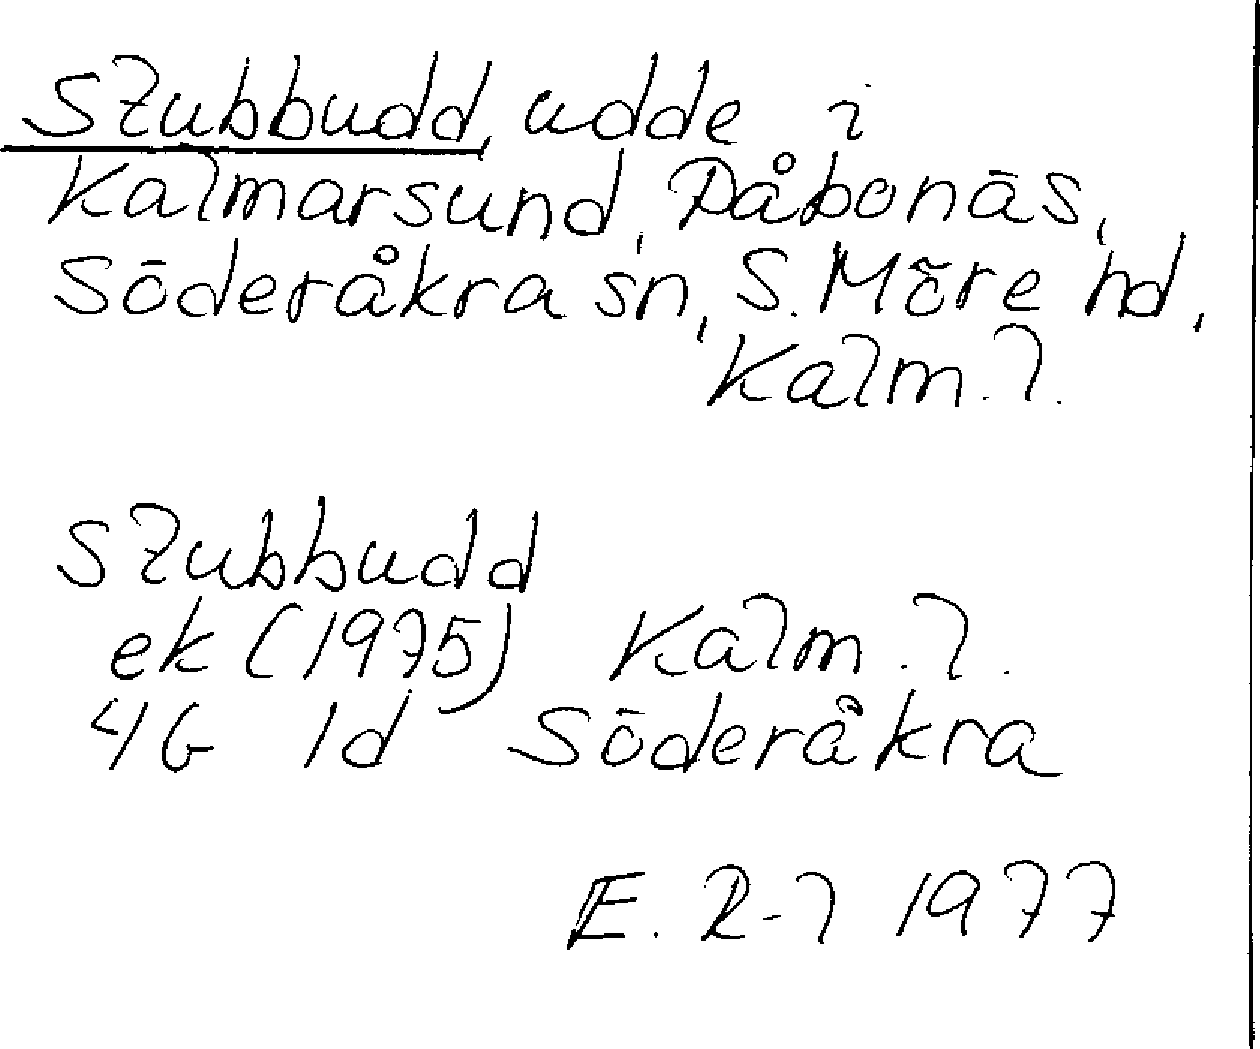 Stubbudd, udde i
Kalmarsund, Påbonäs,
Söderåkra sn, S. Möre hd,
Kalm. l.
Stubbudd
ek (1975) Kalm. l.
4G 1d Söderåkra
E. R-l 1977